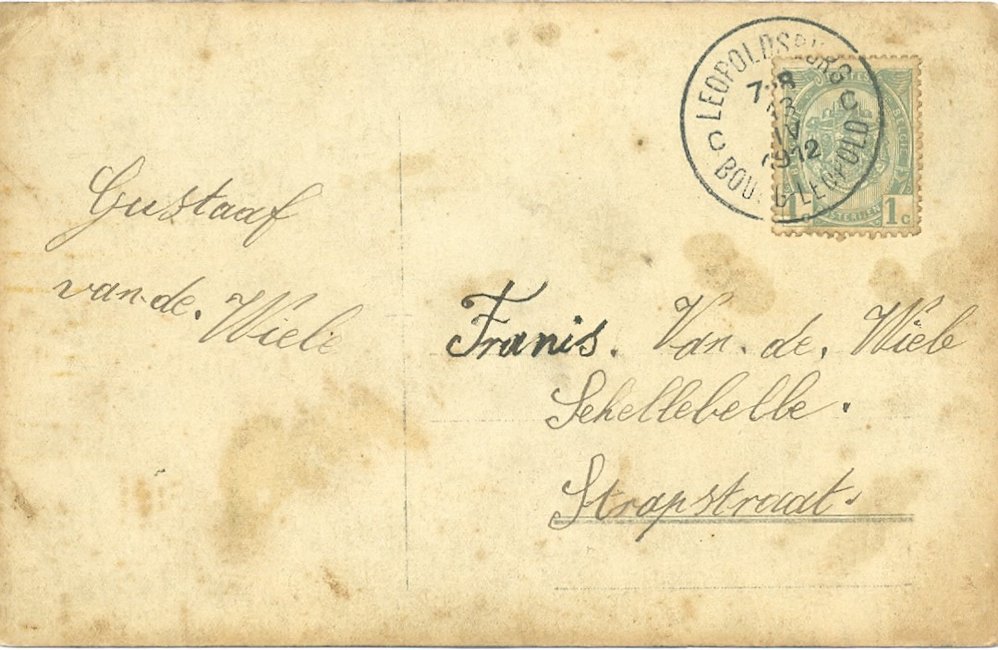 LEOPOLDSBURG
7-8
13
IV
1912
BOURG-LEOPOLD
1c 1c
Gustaaf
van de. Wiele
Franis. Van. de. Wiele
Schellebelle.
Stropstraat.